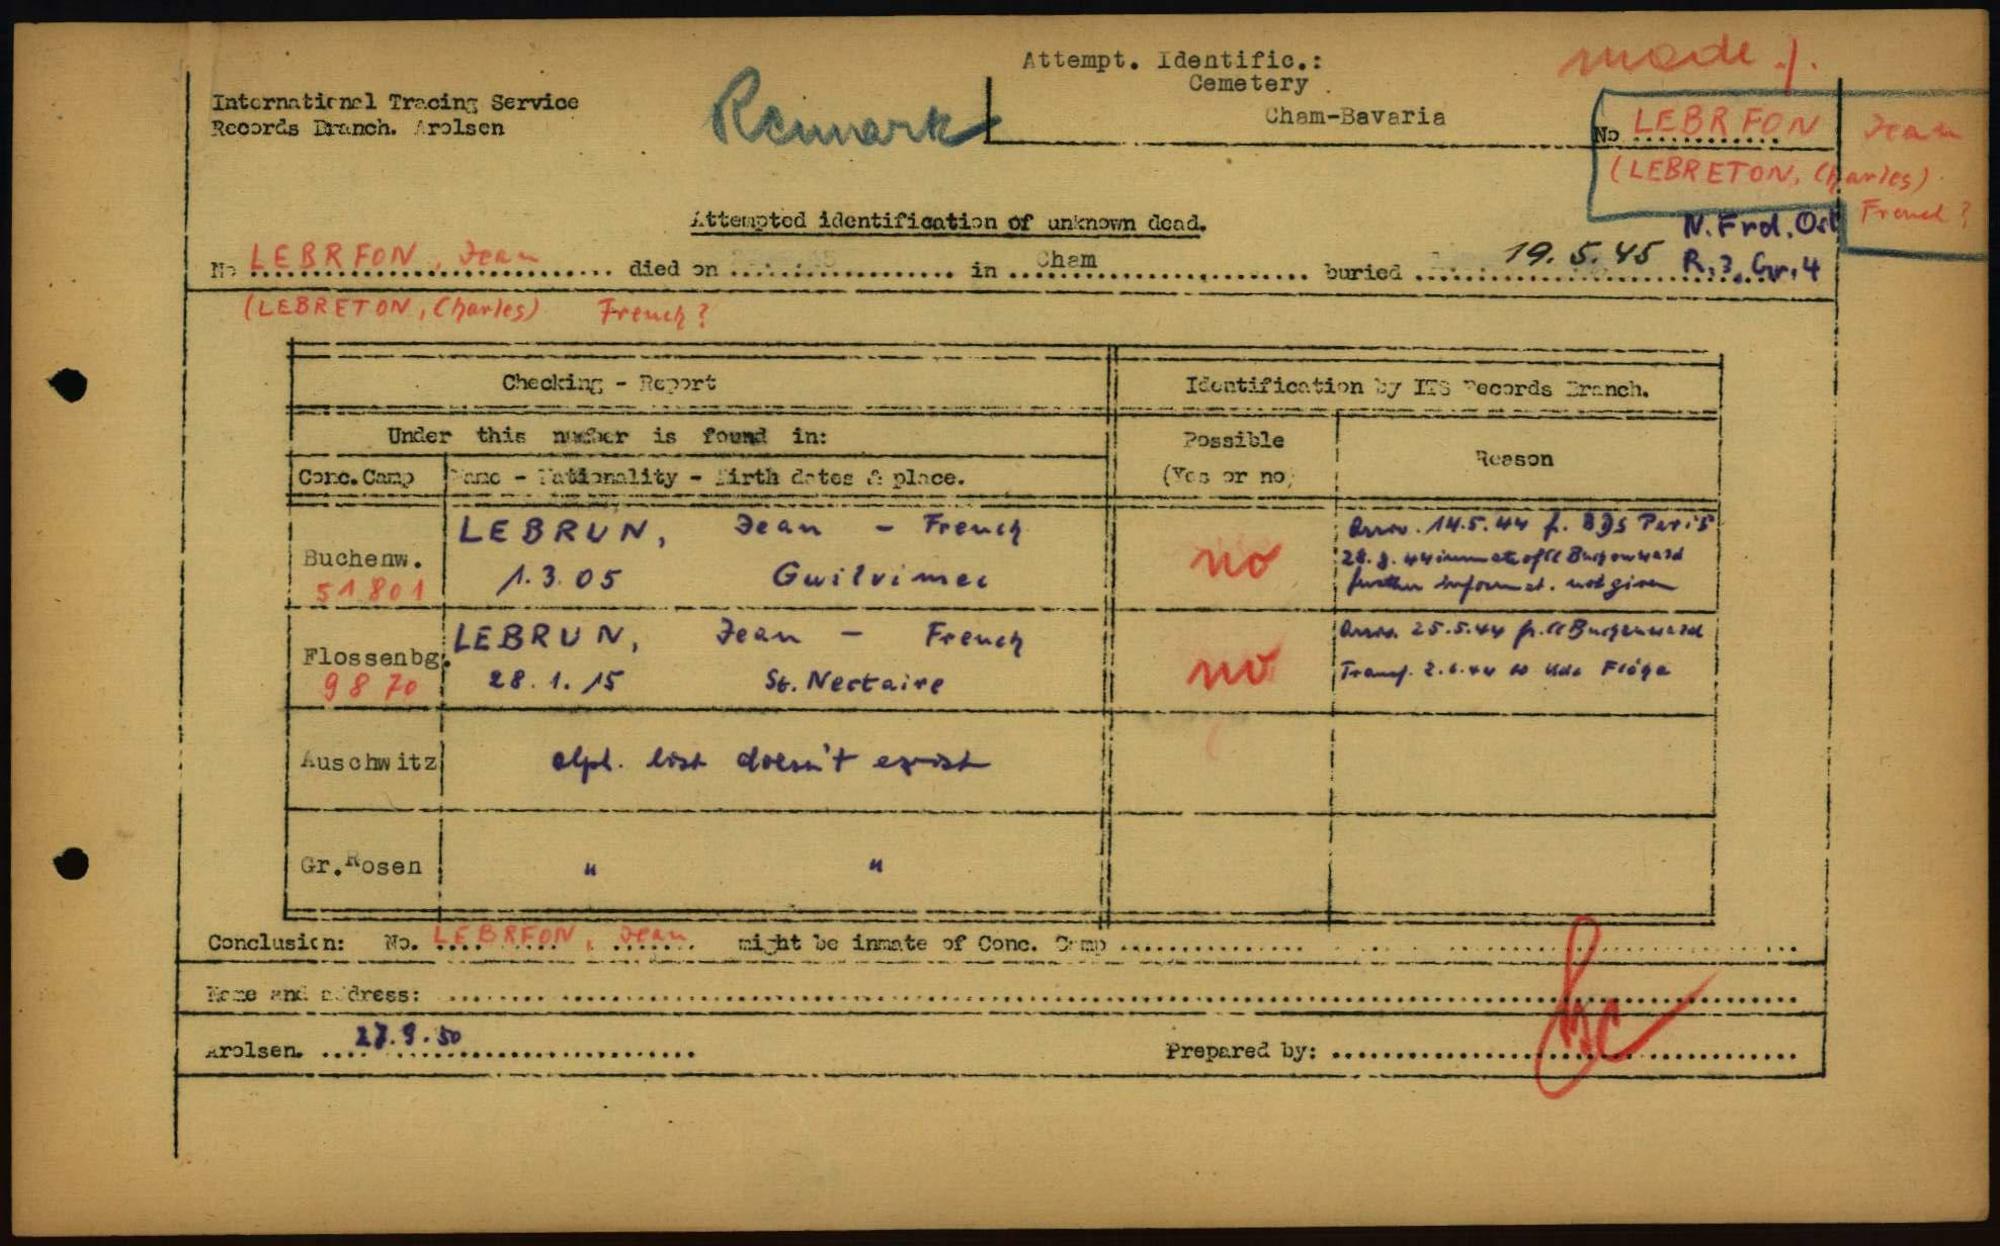 Attempt. Identific.:
made ./.
Cemetery
International Tracing Service
Records Branch. Arolsen
Remark
Cham-Bavaria
No LEBRFON Jean
(LEBRETON, Charles)
French?
Attempted identification of unknown dead.
N. Frd. Ost
No LEBRFON, Jean died on in Cham buried 19.5.45 R.3. Gr.4
(LEBRETON, Charles) French?
Checking - Report
Identification by ITS Records Branch.
Under this number is found in:
Possible
(Yes or no)
Reason
Conc.Camp
Name - Nationality - Birth dates & place.
Buchenw.
51801
LEBRUN, Jean - French
1.3.05 Guilvimec
no
Arriv. 14.5.44 f. BDS Paris
28.8.44 inmate of CC Buchenwald
further informat. not given
Flossenbg.
9870
LEBRUN, Jean - French
28.1.15 St. Nectaire
no
Arriv. 25.5.44 fr. CC Buchenwald
Transf. 2.6.44 to Kdo Flöha
Auschwitz
alph. list doesn't exist
Gr.Rosen
" "
Conclusion: No. LEBRFON, Jean might be inmate of Conc. Camp
Name and address:
Arolsen. 27.9.50
Prepared by: